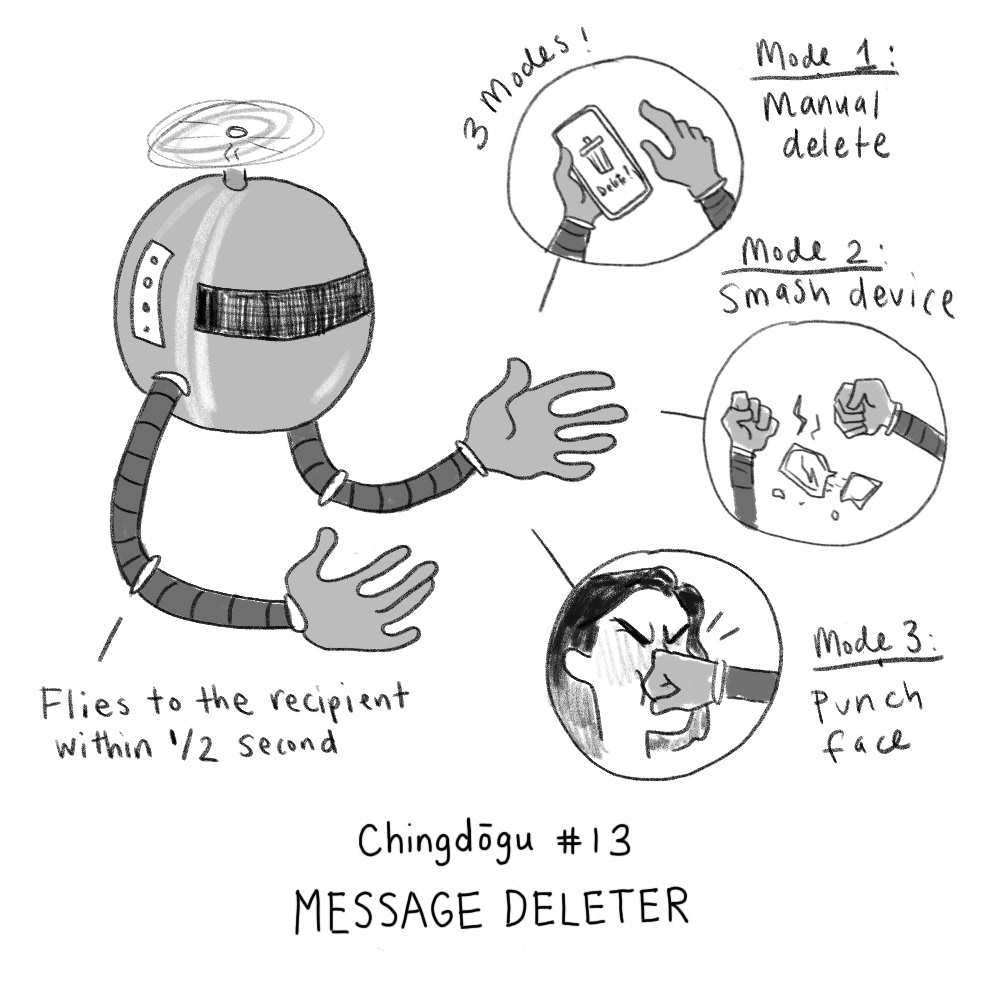 3 Modes!
Mode 1:
Manual
delete
Delete!
Mode 2:
Smash device
Mode 3:
Punch
face
Flies to the recipient
within 1/2 second
Chingdōgu #13
MESSAGE DELETER